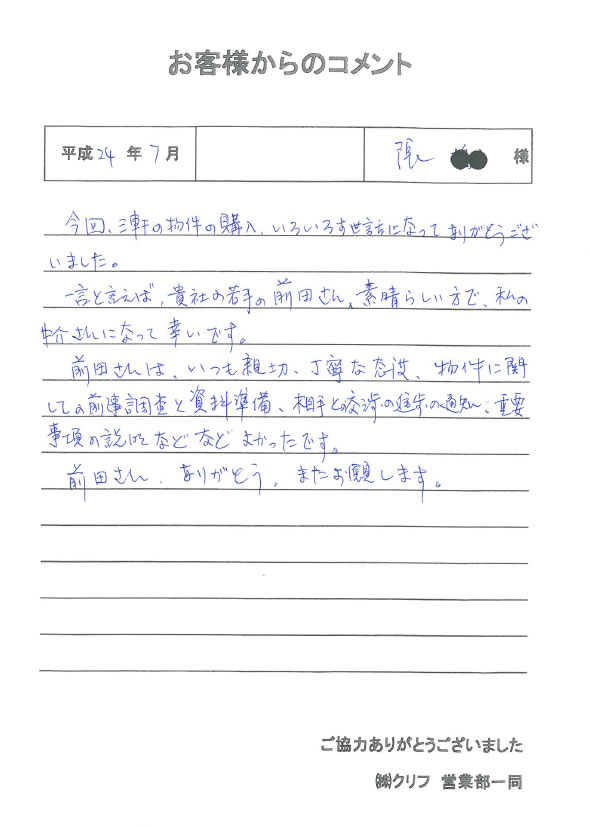 お客様からのコメント
平成24年7月
張 様
今回、三軒の物件の購入、いろいろお世話になってありがとうござ
いました。
一言と言えば、貴社の若手の前田さん、素晴らしい方で、私の
仲介さんになって幸いです。
前田さんは、いつも親切、丁寧な态度、物件に関
しての前事調査と資料準備、相手との交渉の進歩の通知、重要
事項の説明などなどよかったです。
前田さん、ありがとう、またお願します。
ご協力ありがとうございました
㈱クリフ 営業部一同